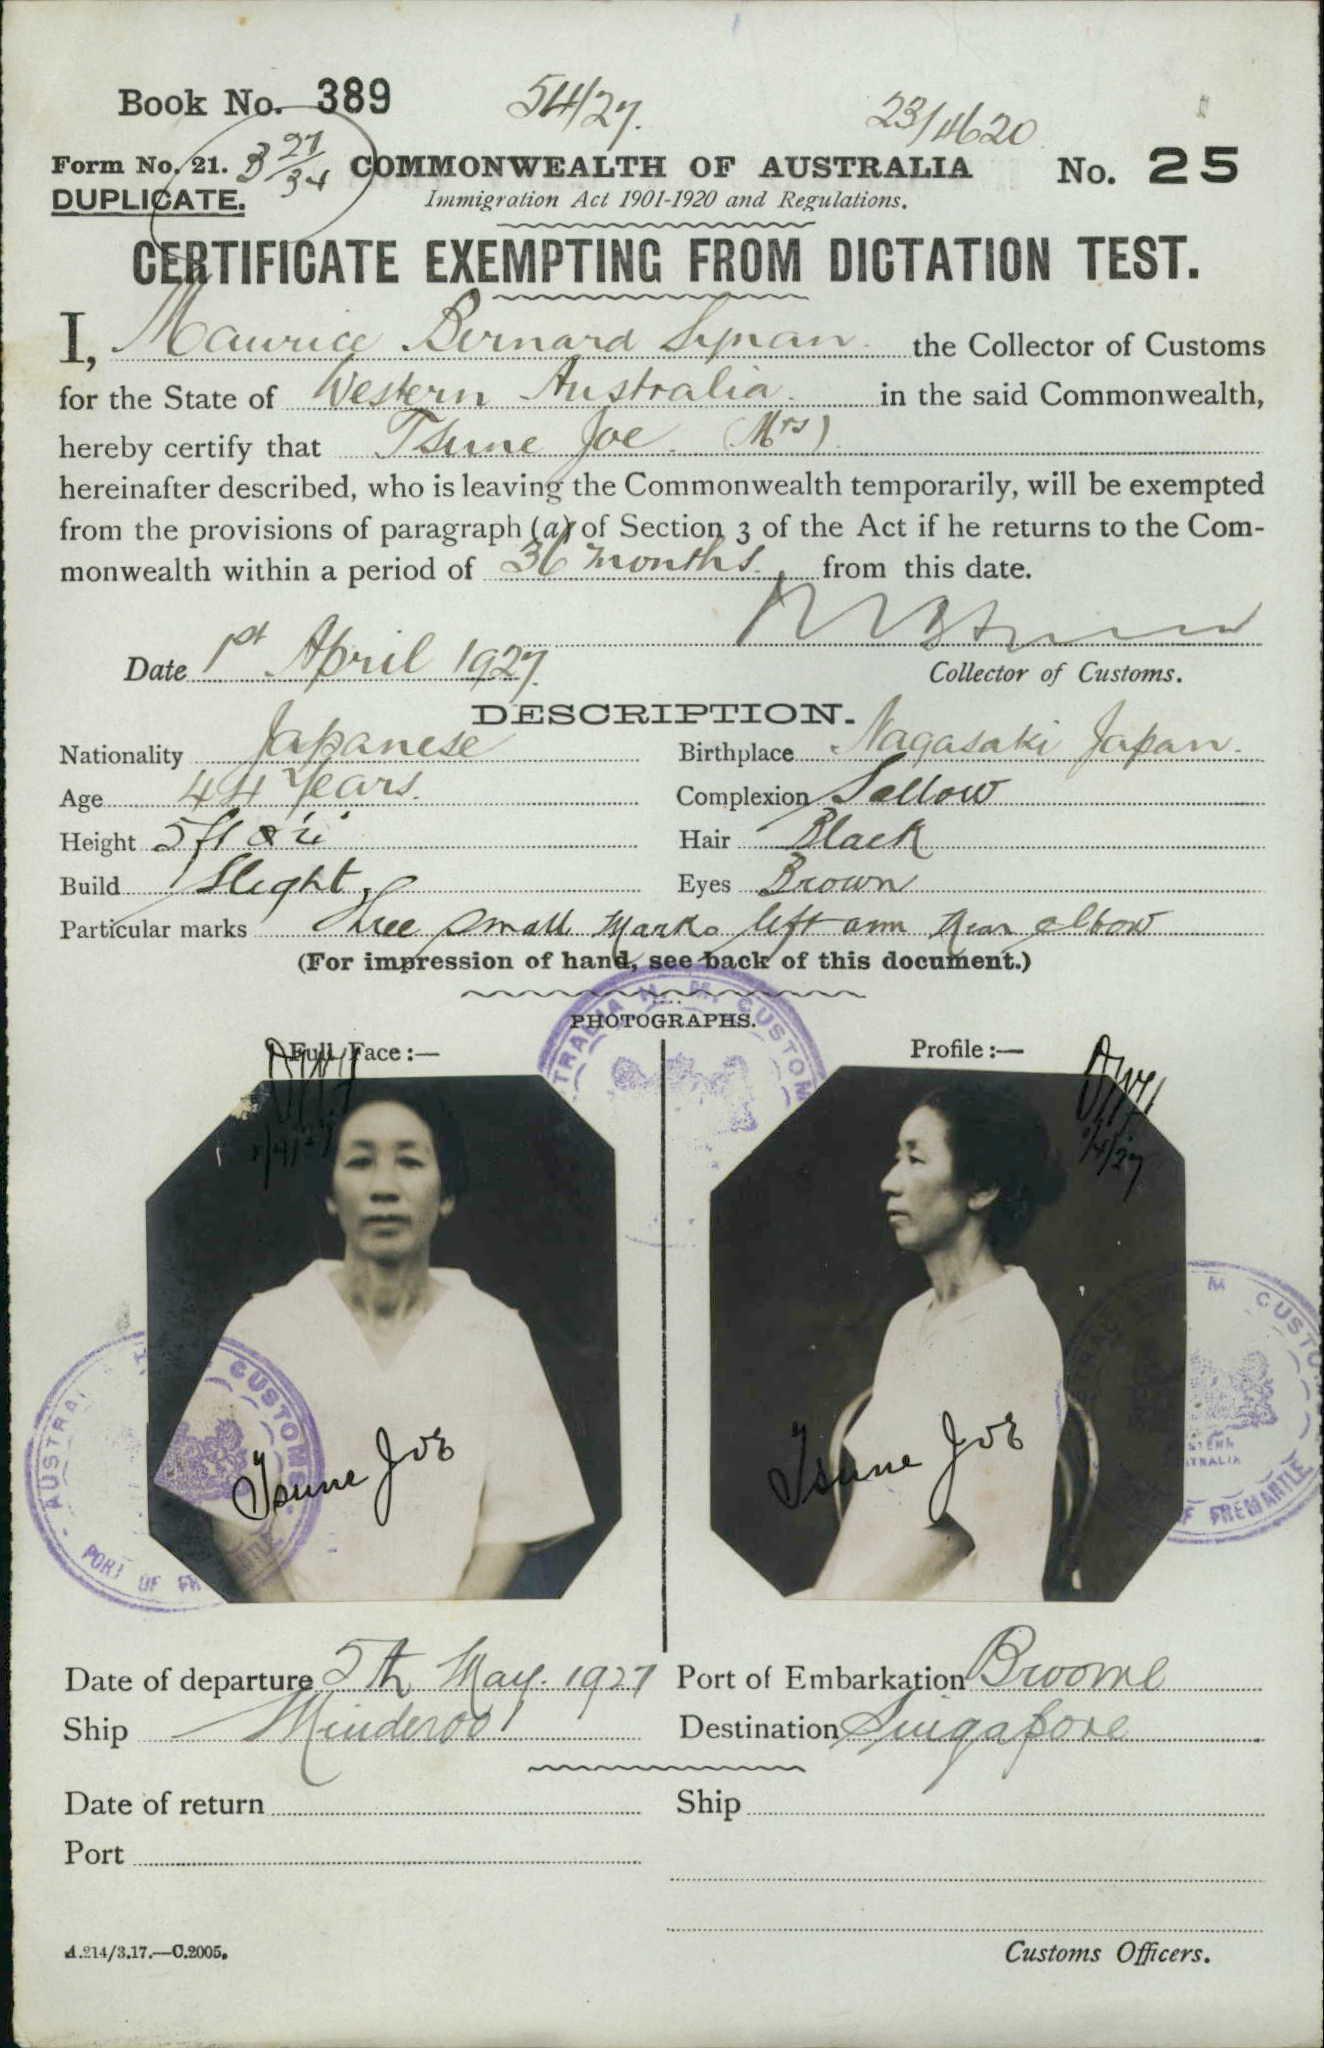 Book No. 389 54/27. 23/4620
Form No. 21. B 27/34 COMMONWEALTH OF AUSTRALIA No. 25
DUPLICATE. Immigration Act 1901-1920 and Regulations.
CERTIFICATE EXEMPTING FROM DICTATION TEST.
I, Maurice Bernard Synan the Collector of Customs
for the State of Western Australia in the said Commonwealth,
hereby certify that Tsune Joe. (Mrs)
hereinafter described, who is leaving the Commonwealth temporarily, will be exempted
from the provisions of paragraph (a) of Section 3 of the Act if he returns to the Com-
monwealth within a period of 36 months from this date.
Date 1st April 1927.
Collector of Customs.
DESCRIPTION.
Nationality Japanese Birthplace Nagasaki Japan.
Age 44 Years. Complexion Sallow
Height 5 ft Hair Black
Build Slight Eyes Brown
Particular marks Three small marks left arm near elbow
(For impression of hand, see back of this document.)
PHOTOGRAPHS.
Full Face:— Profile:—
1/4/27 1/4/27
Tsune Joe Tsune Joe
AUSTRALIA H. M. CUSTOMS
AUSTRALIA CUSTOMS PORT OF FREMANTLE
M CUSTOMS WESTERN AUSTRALIA OF FREMANTLE
Date of departure 5th May. 1927 Port of Embarkation Broome
Ship Minderoo Destination Singapore
Date of return Ship
Port
A.214/3.17.—C.2005. Customs Officers.